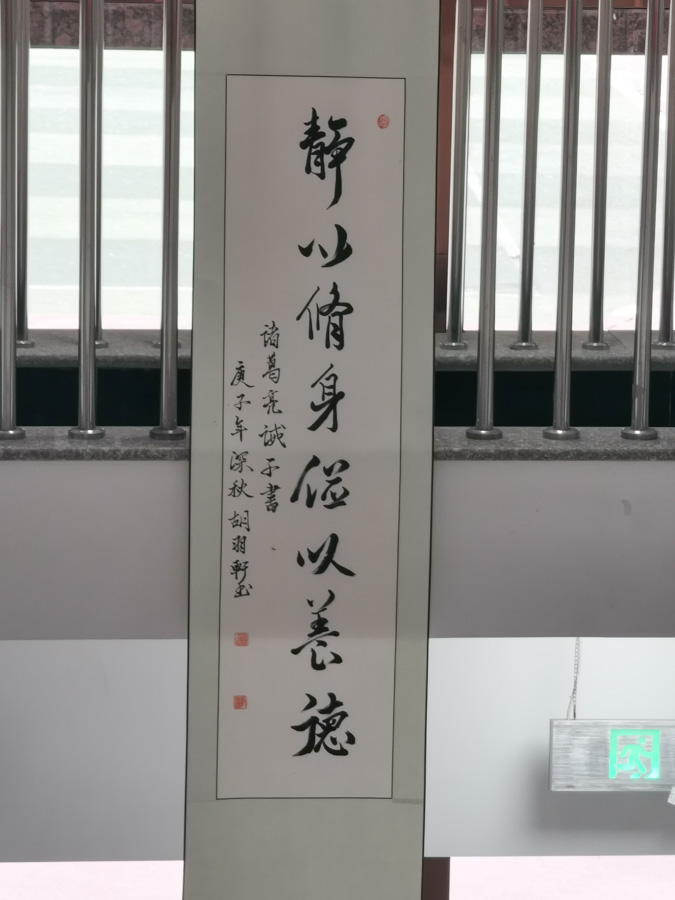 静以脩身俭以养德
诸葛亮诫子書
庚子年深秋 胡羽軒书